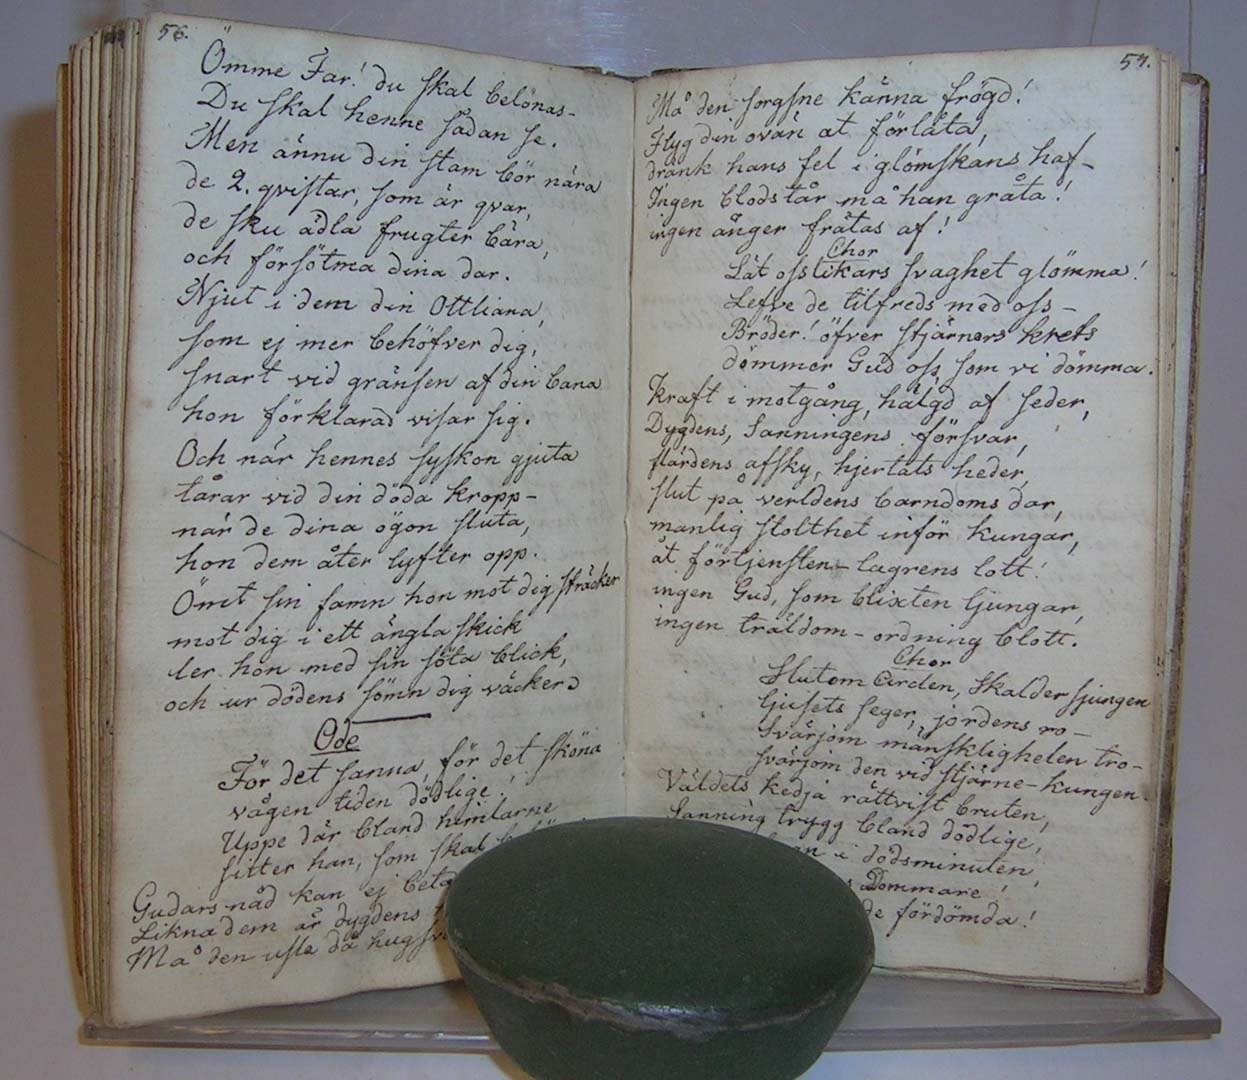 56.
Ömme Far! du skal belönas-
Du skal henne sådan se.
Men ännu din stam bör nära
de 2. qvistar, som är qvar,
de sku ädla frugter bära,
och försötma dina dar.
Njut i dem din Ottliana,
som ej mer behöfver dig,
snart vid gränsen af din bana
hon förklarad visar sig.
Och när hennes syskon gjuta
tårar vid din döda kropp-
när de dina ögon sluta,
hon dem åter lyfter opp.
Ömt sin famn hon mot dig sträcker
mot dig i ett ängla skick
ler hon med sin söta blick,
och ur dödens sömn dig väcker
Ode
För det sanna, för det sköna
vågen tiden dödlige!
Uppe där bland himlarne
sitter han, som skal
Gudars nåd kan ej
Likna dem är dygdens
Må den usle då
57.
Må den sorgsne känna frögd!
Flyg din ovän at förlåta,
dränk hans fel i glömskans haf-
Ingen blods tår må han gråta!
ingen ånger frätas af!
Chor
Låt oss likars svaghet glömma!
Lefve de tilfreds med oss-
Bröder! öfver stjärnors krets
dömmer Gud oss som vi dömma.
Kraft i motgång, hälgd af seder,
Dygdens, Sanningens försvar,
flärdens afsky, hjertats heder,
slut på verldens barndoms dar,
manlig stolthet inför kungar,
åt förtjensten- lagrens lott!
ingen Gud, som blixten ljungar,
ingen träldom- ordning blott.
Chor
Slutom Cirklen, Skalder sjungen
ljusets seger, jordens ro-
Svärjom mänskligheten tro-
svärjom den vid stjärne-kungen.
Väldets kedja rättvist bruten,
Sanning trygg bland dödlige,
i dödsminuten,
Dommare!
de fördömda!